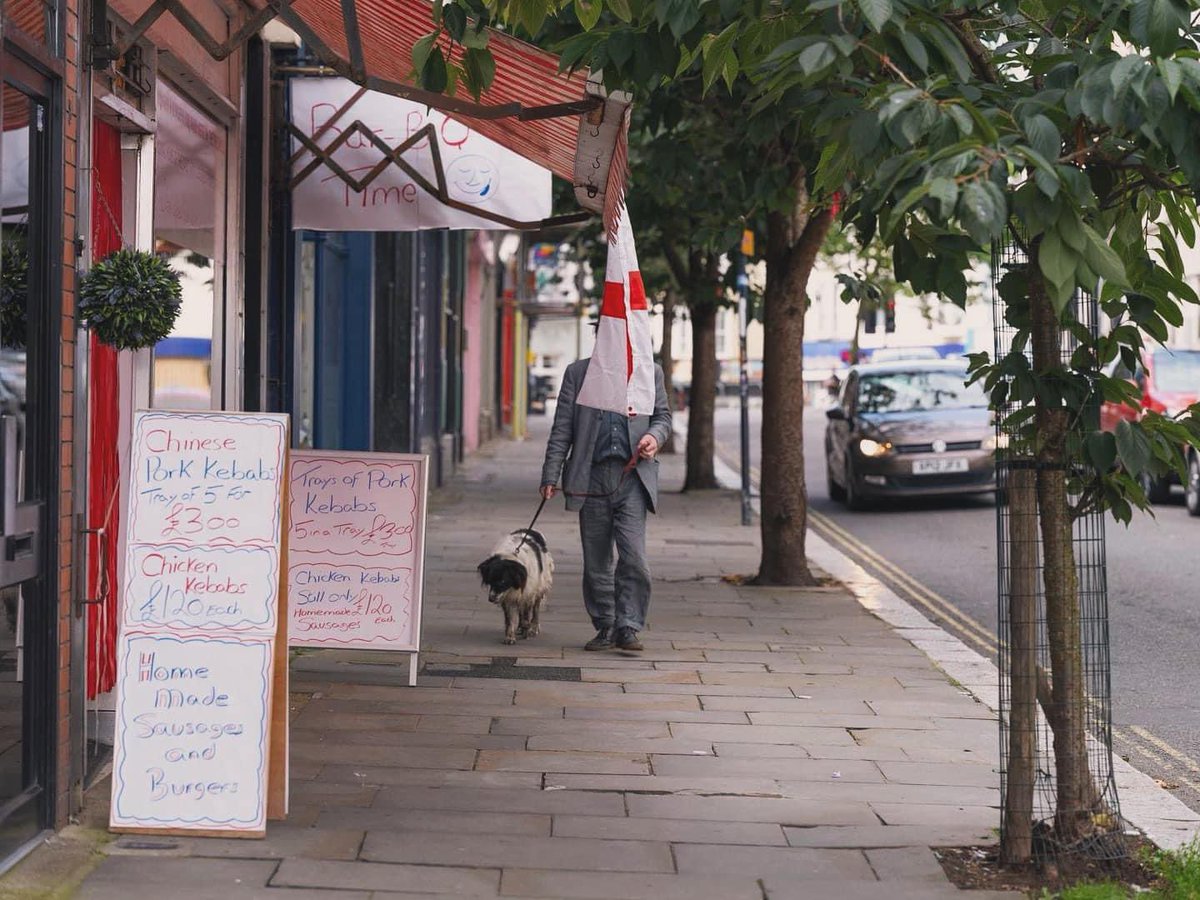 Bar-B-Q
Time
Chinese
Pork Kebabs
Tray of 5 For
£3.00
Chicken
Kebabs
£1.20 Each
Home
Made
Sausages
and
Burgers
Trays of Pork
Kebabs
5 in a Tray £3.00
Chicken Kebabs
Still only £1.20
Homemade Each
Sausages